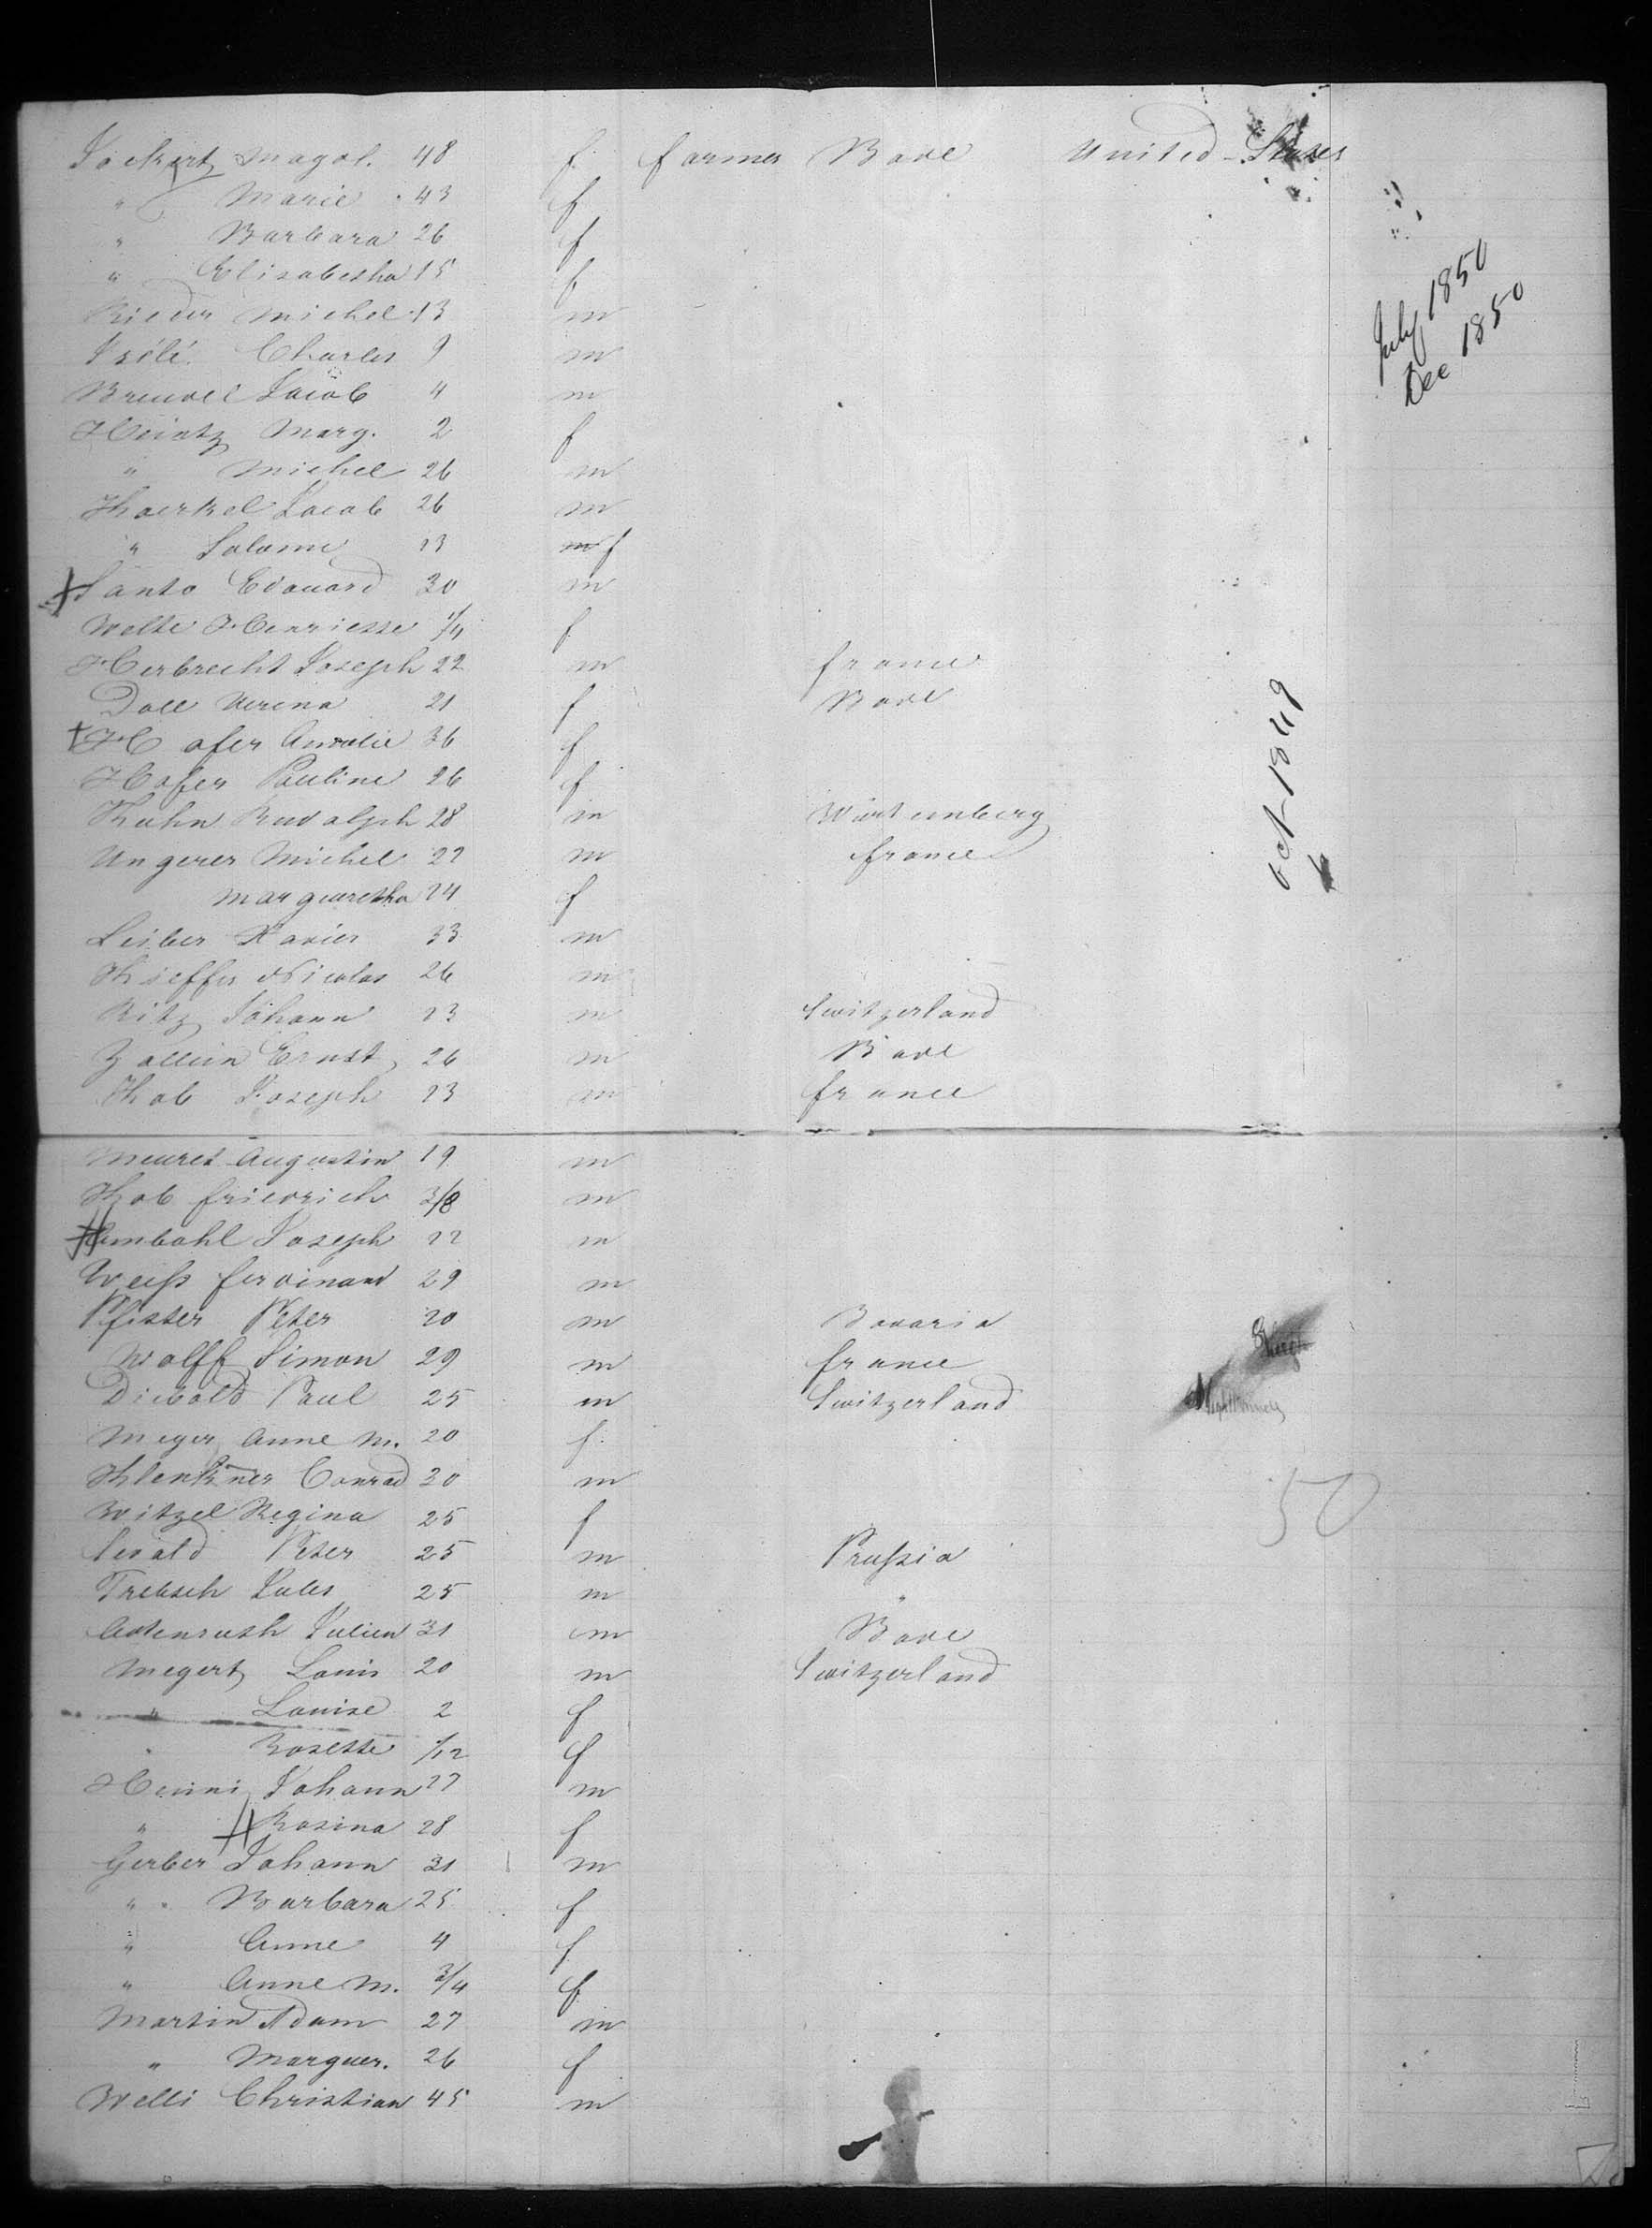 Jockert Magol. 48 f. farmer Bade United-States
" Marie 43 f
" Barbara 26 f
" Elisabetha 15 f
Rieder Michel 13 m
Charles 9 m
Jacob 4 m
Heintz Marg. 2 f
" Michel 26 m
Jacob 26 m
" Salome 23 m f
Santo Edouard 30 m
Welte Henriette 1/4 f
Herbrecht Joseph 22 m france
Doll Verena 21 f Bade
Hofer Amalie 36 f
Hofer Pauline 26 f
Kuhn Rudolph 28 m Würtemberg
Ungerer Michel 22 m france
Margaretha 24 f
Leiber Xavier 33 m
Kieffer Nicolas 26 m
Ritz Johann 23 m Switzerland
Ernst 26 m Bade
Kob Joseph 23 m france
Meuret Augustin 19 m
Kob friedrich 3/8 m
Joseph 22 m
Weiß ferdinand 29 m
Pfister Peter 20 m Bavaria
Wolff Simon 29 m france
Diebold Paul 25 m Switzerland
Meyer Anne M. 20 f.
Klenkner Conrad 30 m
Witzel Regina 25 f
Peter 25 m Prußia
Trebsch Jules 25 m "
Julien 31 m Bade
Megert Louis 20 m Switzerland
" Louise 2 f
" Rosette 1/12 f
Henni Johann 27 m
" Rosina 28 f
Gerber Johann 31 m
" Barbara 25 f
" Anne 4 f
" Anne M. 3/4 f
Martin Adam 27 m
" Marguer. 26 f
Welli Christian 45 m
July 1850
Dec 1850
Oct 1849
50